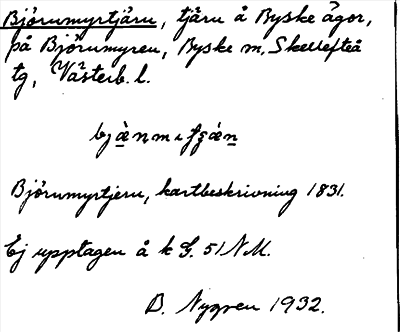 Björnmyrtjärn, tjärn å Byske ägor,
på Björnmyren, Byske m, Skellefteå
tg, Västerb. l.
Björnmyrtjern, kartbeskrivning 1831.
Ej upptagen å k G. 51 N M.
B. Nygren 1932.